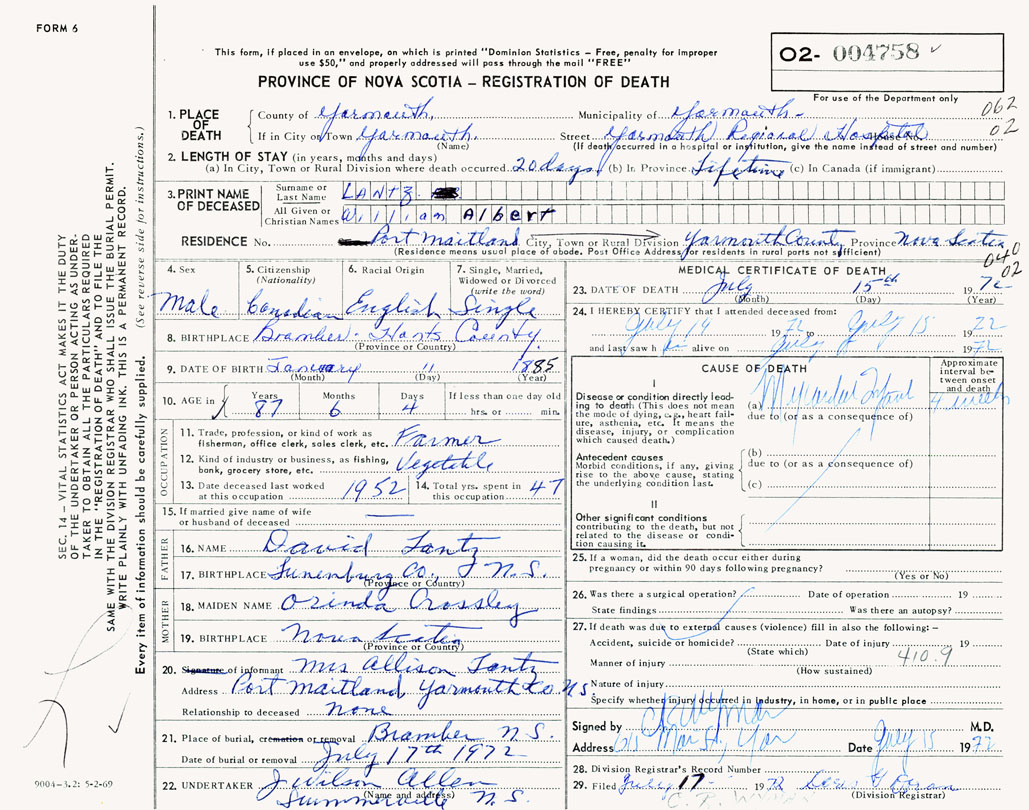 FORM 6
This form, if placed in an envelope, on which is printed "Dominion Statistics - Free, penalty for improper
use $50," and properly addressed will pass through the mail "FREE"
PROVINCE OF NOVA SCOTIA – REGISTRATION OF DEATH
O2- 004758
For use of the Department only
062
02
1. PLACE OF DEATH
County of Yarmouth, Municipality of Yarmouth -
If in City or Town Yarmouth. Street Yarmouth Regional Hospital House No.
(Name) (If death occurred in a hospital or institution, give the name instead of street and number)
2. LENGTH OF STAY (in years, months and days)
(a) In City, Town or Rural Division where death occurred 20 days (b) In Province Lifetime (c) In Canada (if immigrant)
3. PRINT NAME OF DECEASED
Surname or Last Name LANTZ
All Given or Christian Names William Albert
RESIDENCE No. Port Maitland City, Town or Rural Division Yarmouth County Province Nova Scotia
(Residence means usual place of abode. Post Office Address for residents in rural parts not sufficient)
040
02
4. Sex
Male
5. Citizenship
(Nationality)
Canadian
6. Racial Origin
English
7. Single, Married,
Widowed or Divorced
(write the word)
Single
8. BIRTHPLACE Bramber Hants County
(Province or Country)
9. DATE OF BIRTH January 11 1885
(Month) (Day) (Year)
10. AGE in
Years Months Days If less than one day old
87 6 4 hrs. or min.
OCCUPATION
11. Trade, profession, or kind of work as
fisherman, office clerk, sales clerk, etc. Farmer
12. Kind of industry or business, as fishing,
bank, grocery store, etc. Vegetable
13. Date deceased last worked
at this occupation 1952
14. Total yrs. spent in
this occupation 47
15. If married give name of wife
or husband of deceased —
FATHER
16. NAME David Lantz
17. BIRTHPLACE Lunenburg Co., N.S.
(Province or Country)
MOTHER
18. MAIDEN NAME Orinda Crossley
19. BIRTHPLACE Nova Scotia
(Province or Country)
20. Signature of informant Mrs Allison Lantz
Address Port Maitland, Yarmouth Co. N.S
Relationship to deceased None
21. Place of burial, cremation or removal Bramber N.S.
Date of burial or removal July 17th 1972
22. UNDERTAKER J Wilson Allen
(Name and address)
Summerville N.S.
MEDICAL CERTIFICATE OF DEATH
23. DATE OF DEATH July 15th 1972
(Month) (Day) (Year)
24. I HEREBY CERTIFY that I attended deceased from:
July 19 1972 to July 15 1972
and last saw h im alive on July 1972
CAUSE OF DEATH
Approximate
interval be-
tween onset
and death
I
Disease or condition directly lead-
ing to death (This does not mean
the mode of dying, e.g., heart fail-
ure, asthenia, etc. It means the
disease, injury, or complication
which caused death.)
(a) Myocardial Infarct 4 weeks
due to (or as a consequence of)
Antecedent causes
Morbid conditions, if any, giving
rise to the above cause, stating
the underlying condition last.
(b)
due to (or as a consequence of)
(c)
II
Other significant conditions
contributing to the death, but not
related to the disease or condi-
tion causing it.
25. If a woman, did the death occur either during
pregnancy or within 90 days following pregnancy?
(Yes or No)
26. Was there a surgical operation? Date of operation 19
State findings Was there an autopsy?
27. If death was due to external causes (violence) fill in also the following: –
Accident, suicide or homicide? Date of injury 19
(State which)
410.9
Manner of injury
(How sustained)
Nature of injury
Specify whether injury occurred in industry, in home, or in public place
Signed by M.D.
Address Main St, Yar Date July 15 1972
28. Division Registrar's Record Number
29. Filed July 17 - 1972
(Division Registrar)
SEC. 14 – VITAL STATISTICS ACT MAKES IT THE DUTY
OF THE UNDERTAKER OR PERSON ACTING AS UNDER-
TAKER TO OBTAIN ALL THE PARTICULARS REQUIRED
IN THE "REGISTRATION OF DEATH" AND TO FILE THE
SAME WITH THE DIVISION REGISTRAR WHO SHALL ISSUE THE BURIAL PERMIT.
WRITE PLAINLY WITH UNFADING INK. THIS IS A PERMANENT RECORD.
Every item of information should be carefully supplied. (See reverse side for instructions.)
9004-3.2: 5-2-69